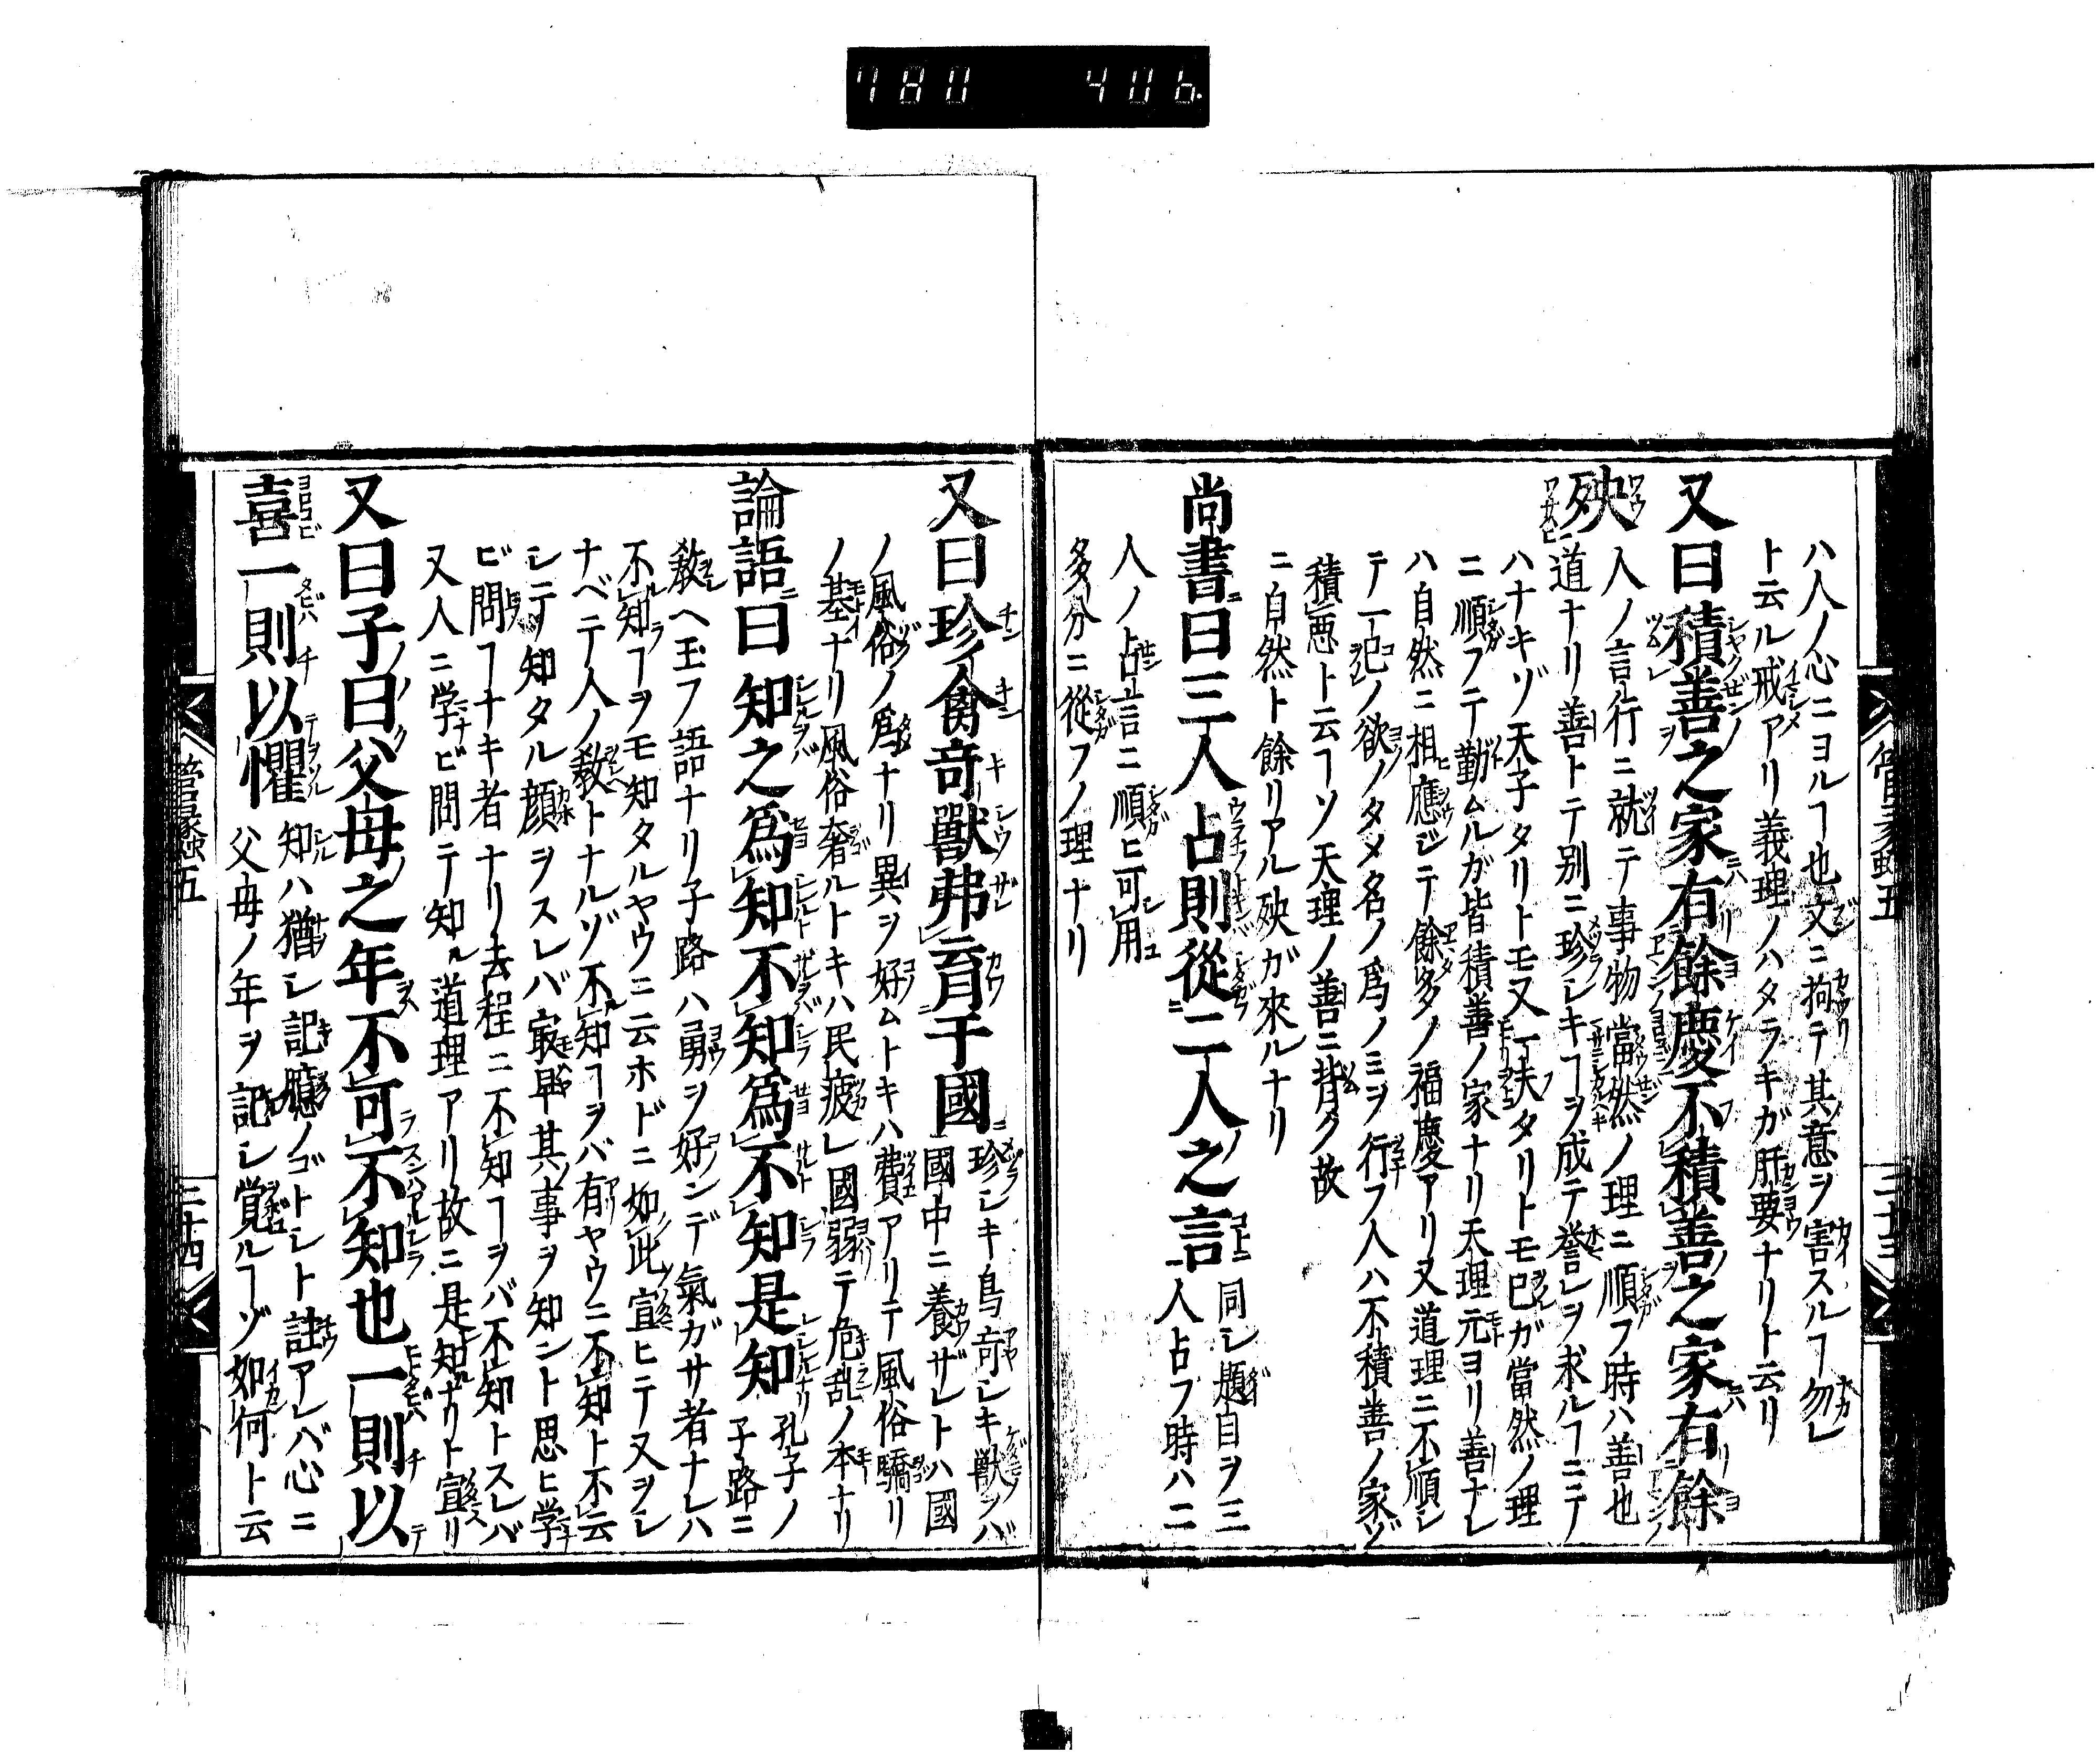 780 406
ハ人ノ心ニヨルヿ也文ニ拘テ其意ヲ害スルヿ勿レ
ト云ル戒アリ義理ノハタラキガ肝要ナリト云リ
又曰積善之家有餘慶不積善之家有餘
殃 人ノ言行ニ就テ事物當然ノ理ニ順フ時ハ善也
道ナリ善トテ別ニ珍レキヿヲ成テ誉レヲ求ルヿニテ
ハナキゾ天子タリトモ又一夫タリトモ己ガ當然ノ理
ニ順フテ勤ムルガ皆積善ノ家ナリ天理元ヨリ善ナレ
ハ自然ニ相應ジテ餘多ノ福慶アリ又道理ニ不順レ
テ一己ノ欲ノタメ名ノ為ノミヲ行フ人ハ不積善ノ家ゾ
積悪ト云ヿソ天理ノ善ニ背ク故
ニ自然ト餘リアル殃ガ來ルナリ
尚書曰三人占則從二人之言 同レ題自ヲ三
人占フ時ハ二
人ノ占言ニ順ヒ可用
多分ニ從フノ理ナリ
管蠡五
二十三
又曰珍禽奇獸弗育于國 珍シキ鳥奇シキ獸ヲバ
國中ニ養ザレトハ國
ノ風俗ノ爲ナリ異ヲ好ムトキハ費アリテ風俗驕リ
ノ基ナリ風俗奢ルトキハ民疲レ國弱テ危乱ノ本ナリ
論語曰知之爲知不知爲不知是知 孔子ノ
子路ニ
教ヘ玉フ語ナリ子路ハ勇ヲ好ンデ氣ガサ者ナレハ
不知ヿヲモ知タルヤウニ云ホドニ如此宣ヒテ又ヲシ
ナベテ人ノ教トナルゾ不知ヿヲバ有ヤウニ不知ト不云
シテ知タル顔ヲスレバ最早其事ヲ知ント思ヒ学
ビ問ヿナキ者ナリ去程ニ不知ヿヲバ不知トスレバ
又人ニ学ビ問テ知ル道理アリ故ニ是知ナリト宣リ
又曰子曰父母之年不可不知也一則以
喜一則以懼 知ハ猶シ記臆ノゴトレト註アレバ心ニ
父母ノ年ヲ記シ覚ルヿゾ如何ト云
管蠡五
二十四